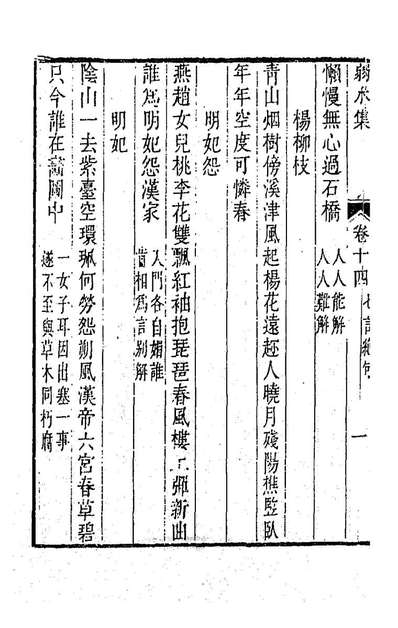 弱水集　卷十四　七言絕句　一
懶慢無心過石橋　人人能解
人人難解
楊柳枝
青山烟樹傍溪津風起楊花遠趂人曉月殘陽樵監臥
年年空度可憐春
明妃怨
燕趙女兒桃李花雙飄紅袖抱琵琶春風樓上彈新曲
誰爲明妃怨漢家　入門各自媚誰
肯相爲言别解
明妃
陰山一去紫臺空環珮何勞怨朔風漢帝六宮春草碧
只今誰在畵圖中　一女子耳因出塞一事
遂不至與草木同朽腐